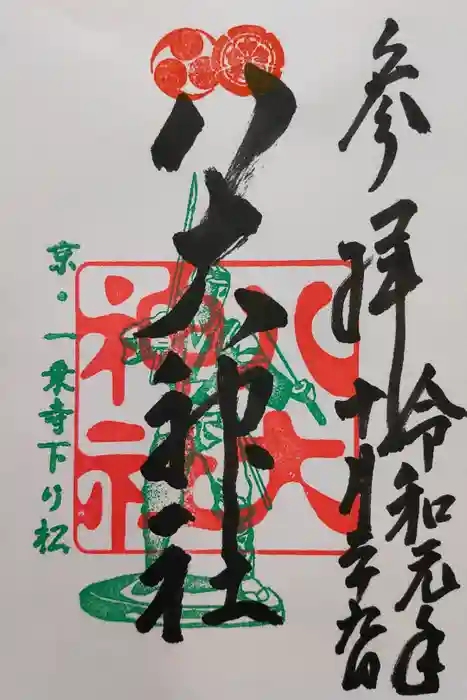 参拝
令和元年
十月二十九日
八大神社
八大
神社
京・一乗寺下り松